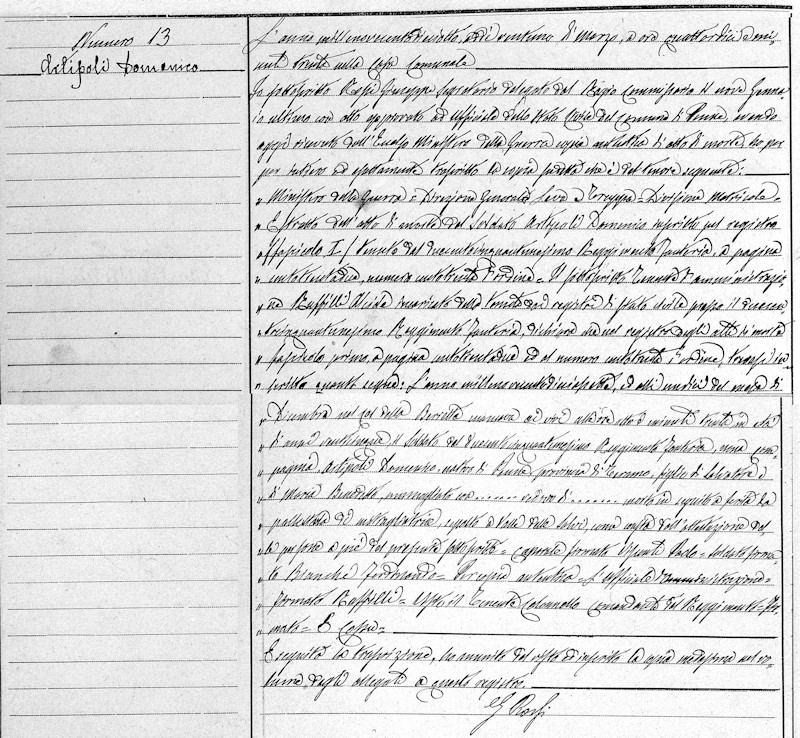 Numero 13
Artipoli Domenico
L'anno millenovecentodiciotto, addì ventuno di Marzo, a ore quattordici e mi-
nuti trenta nella Casa Comunale
Io sottoscritto Rossi Giuseppe Segretario delegato dal Regio Commissario il nove Genna-
io ultimo con atto approvato ad Ufficiale dello Stato Civile del Comune di Penne, avendo
oggi ricevuto dall'Eccelso Ministero della Guerra copia autentica di atto di morte, ho per
per intero ed esattamente trascritto la copia predetta che è del tenore seguente:
" Ministero della Guerra = Direzione Generale Leva e Truppa = Divisione Matricole =
" Estratto dell'atto di morte del Soldato Artipoli Domenico inscritto nel registro
" fascicolo I° tenuto dal duecentocinquantunesimo Reggimento Fanteria, a pagina
" centotrentadue, numero centotrenta d'ordine = Il sottoscritto Tenente d'amministrazio-
" ne Ruffilli Alcide incaricato della tenuta dei registri di stato civile presso il duecen-
" tocinquantunesimo Reggimento Fanteria, dichiara che nel registro degli atti di morte
" fascicolo primo, a pagina centotrentadue ed al numero centotrenta d'ordine, trovasi in-
" scritto quanto segue: L'anno millenovecentodiciassette, ed alli undici del mese di
" Dicembre nel Col della Berretta mancava ai vivi alle ore otto e minuti trenta in età
" di anni venticinque il Soldato del duecentocinquantunesimo Reggimento Fanteria, nona com-
" pagnia, Artipoli Domenico, nativo di Penne, provincia di Teramo, figlio di Salvatore e
" di Maria Benedetta, ammogliato con ........ vedovo di ........ morto in seguito a ferita da
" pallettola di mitragliatrice, sepolto a Valle delle Selve, come risulta dall'attestazione del-
" le persone a piè del presente sottoscritte = Caporale firmato Paolo = Soldato firma-
" to Bianchi Ferdinando = Per copia autentica = L'Ufficiale d'amministrazione =
" firmato Ruffilli = Visto il Tenente Colonnello Comandante del Reggimento = Fir-
" mato = E. Cossu =
Eseguita la trascrizione, ho munito del visto ed inserito la copia medesima nel vo-
lume degli allegati a questo registro.
G Rossi